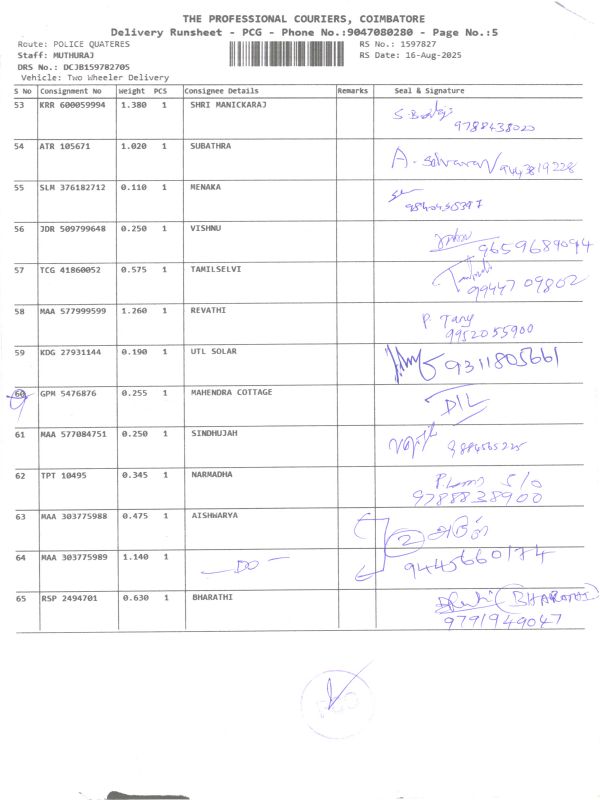 THE PROFESSIONAL COURIERS, COIMBATORE
Delivery Runsheet - PCG - Phone No.:9047080280 - Page No.:5
Route: POLICE QUATERES
RS No.: 1597827
Staff: MUTHURAJ
RS Date: 16-Aug-2025
DRS No.: DCJB159782705
Vehicle: Two Wheeler Delivery
S No Consignment No Weight PCS Consignee Details Remarks Seal & Signature
53 KRR 600059994 1.380 1 SHRI MANICKARAJ
9788438020
54 ATR 105671 1.020 1 SUBATHRA
A. Selvaraj 9443819228
55 SLM 376182712 0.110 1 MENAKA
56 JDR 509799648 0.250 1 VISHNU
9659689094
57 TCG 41860052 0.575 1 TAMILSELVI
99447 09802
58 MAA 577999599 1.260 1 REVATHI
P. Tany
9952055900
59 KDG 27931144 0.190 1 UTL SOLAR
9311805661
60 GPM 5476876 0.255 1 MAHENDRA COTTAGE
D/L
61 MAA 577084751 0.250 1 SINDHUJAH
62 TPT 10495 0.345 1 NARMADHA
S/o
9788838900
63 MAA 303775988 0.475 1 AISHWARYA
2
64 MAA 303775989 1.140 1 — DO —
9445660174
65 RSP 2494701 0.630 1 BHARATHI
(BHARATHI)
9791949047